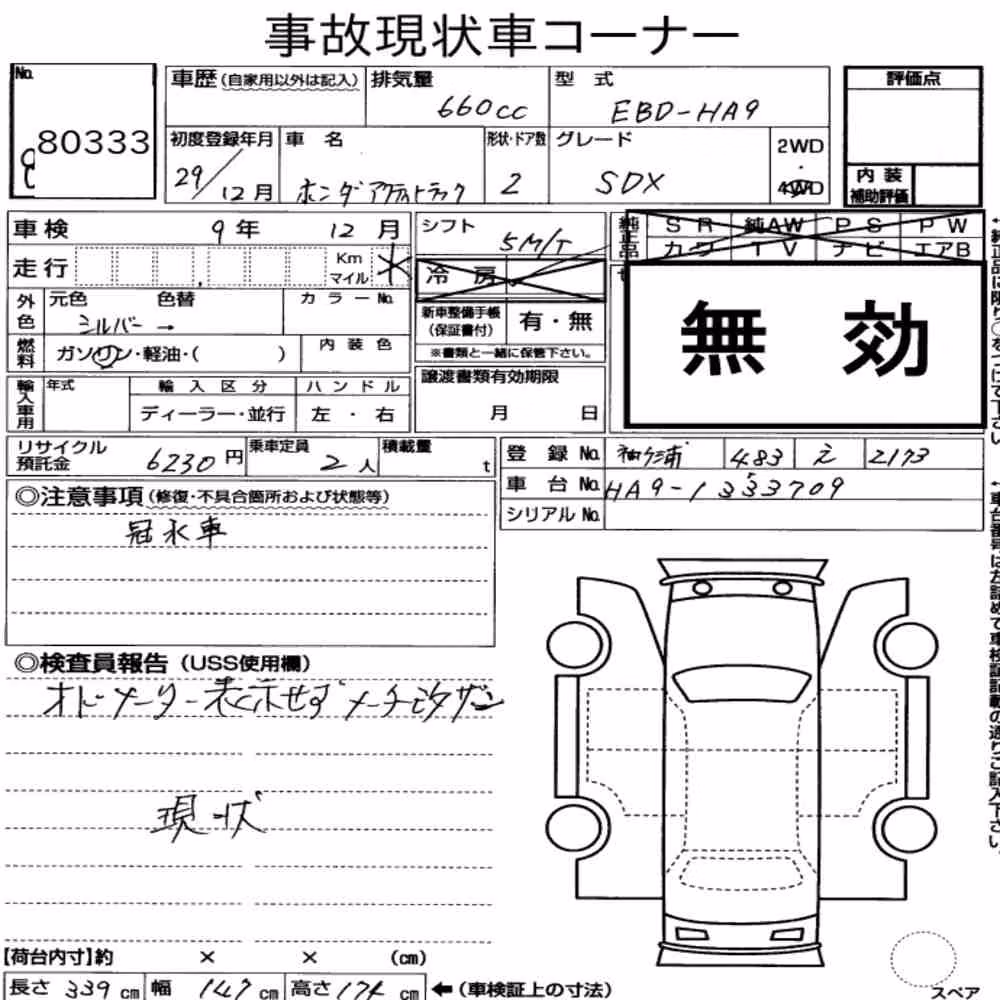 事故現状車コーナー
No. 80333
車歴(自家用以外は記入)
排気量 660cc
型式 EBD-HA9
評価点
初度登録年月 29/12月
車名 ホンダアクティトラック
形状・ドア数 2
グレード SDX
2WD・4WD
内装補助評価
車検 9年 12月
シフト 5M/T
純正品 SR 純AW PS PW
カワ TV ナビ エアB
走行 Km マイル
冷房
外色 元色 シルバー→ 色替 カラーNo.
新車整備手帳(保証書付) 有・無
※書類と一緒に保管下さい。
無効
燃料 ガソリン・軽油・( ) 内装色
輸入車用 年式 輸入区分 ハンドル
ディーラー・並行 左・右
譲渡書類有効期限
月 日
リサイクル預託金 6230円
乗車定員 2人
積載量 t
登録No. 袖ケ浦 483 え 2173
車台No. HA9-1
シリアルNo.
◎注意事項(修復・不具合箇所および状態等)
冠水車
◎検査員報告(USS使用欄)
オドメーター表示せずメーター改ザン
現状
【荷台内寸】約 × × (cm)
長さ 339cm 幅 147cm 高さ 174cm ←(車検証上の寸法)
スペア